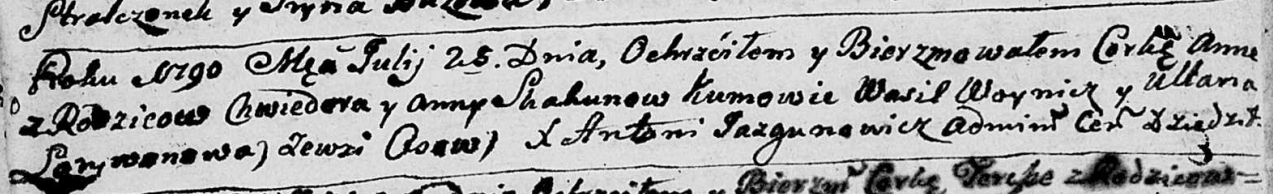 Stralczonek y Iryna
Roku 1790 Mca Julij 25. Dnia, Ochrzciłem y Bierzmowałem Corkę Annę
z Rodzicow Chwiedora y Anny Skakunow Kumowie Wasil Woynicz y Ullana
Zewzi X Antoni Jazgunowicz Admin Cer Dziedzit.
Ochrzciłem y Bierzm Corkę z Rodzicow